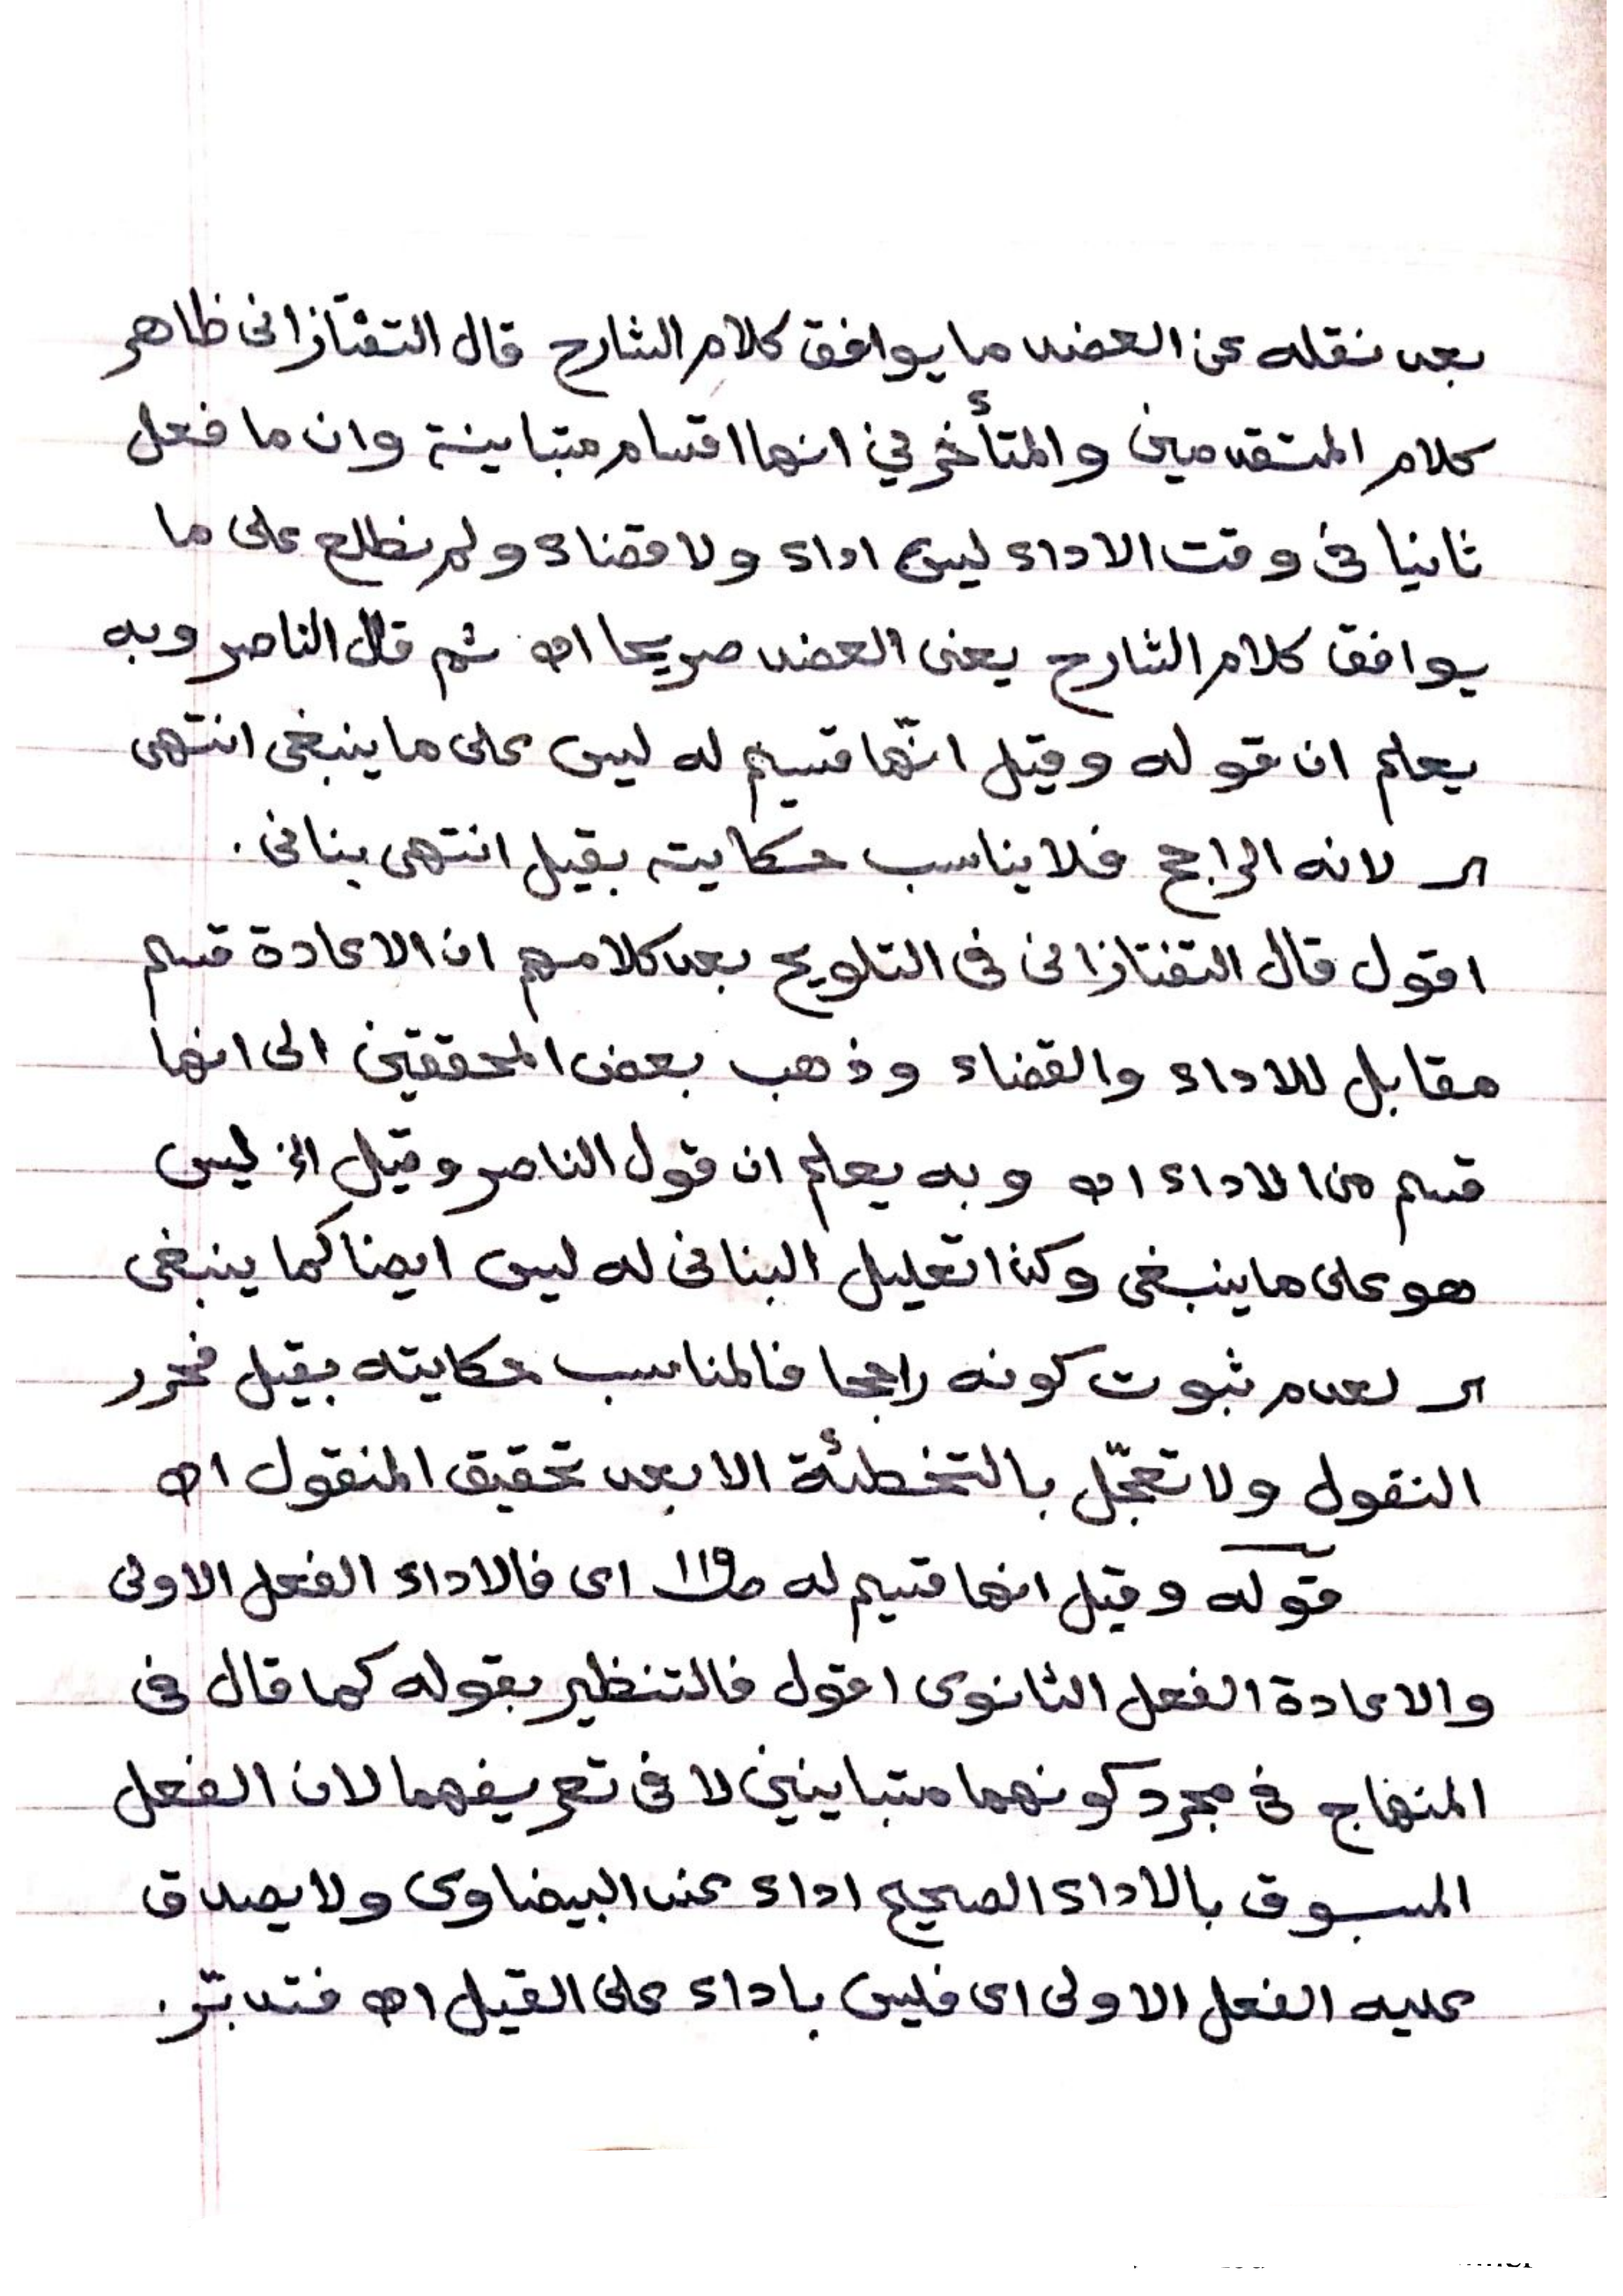 بعد نقله عن العضد ما يوافق كلام الشارح قال التفتازانى ظاهر
كلام المتقدمين والمتأخرين انها اقسام متباينة وان ما فعل
ثانيا فى وقت الاداء ليس اداء ولا قضاء ولم نطلع على ما
يوافق كلام الشارح يعنى العضد صريحا اھ ثم قال الناصر وبه
يعلم ان قوله وقيل انّها قسيم له ليس على ما ينبغى انتهى
لانه الراجح فلا يناسب حكايته بقيل انتهى بنانى .
اقول قال التفتازانى فى التلويح بعد كلامهم ان الاعادة قسم
مقابل للاداء والقضاء وذهب بعض المحققين الى انها
قسم من الاداء اھ وبه يعلم ان قول الناصر وقيل الخ ليس
هو على ما ينبغى وكذا تعليل البنانى له ليس ايضا كما ينبغى
لعدم ثبوت كونه راجحا فالمناسب حكايته بقيل فحرر
النقول ولا تعجّل بالتخطئة الا بعد تحقيق المنقول اھ
قوله وقيل انها قسيم له ص١١٩ اى فالاداء الفعل الاولى
والاعادة الفعل الثانوى اقول فالتنظير بقوله كما قال فى
المنهاج فى مجرد كونهما متباينين لا فى تعريفهما لان الفعل
المسبوق بالاداء الصحيح اداء عند البيضاوى ولا يصدق
عليه الفعل الاولى اى فليس باداء على القيل اھ فتدبّر .